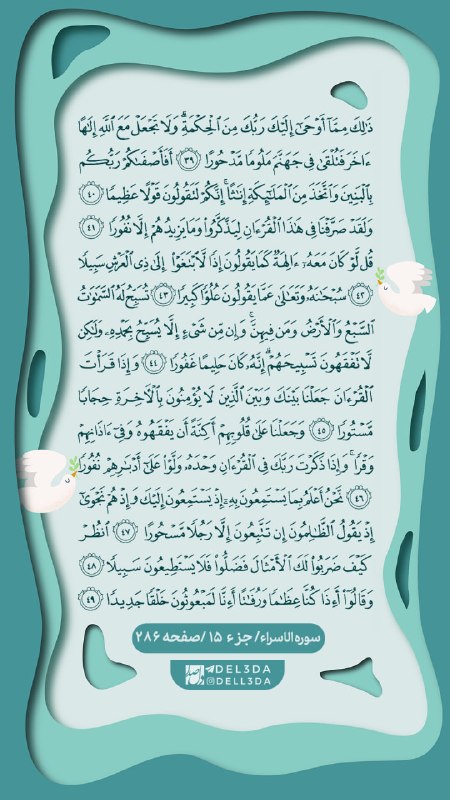 ذَٰلِكَ مِمَّآ أَوۡحَىٰٓ إِلَيۡكَ رَبُّكَ مِنَ ٱلۡحِكۡمَةِۗ وَلَا تَجۡعَلۡ مَعَ ٱللَّهِ إِلَٰهًا
ءَاخَرَ فَتُلۡقَىٰ فِي جَهَنَّمَ مَلُومٗا مَّدۡحُورًا ٣٩ أَفَأَصۡفَىٰكُمۡ رَبُّكُم
بِٱلۡبَنِينَ وَٱتَّخَذَ مِنَ ٱلۡمَلَٰٓئِكَةِ إِنَٰثًاۚ إِنَّكُمۡ لَتَقُولُونَ قَوۡلًا عَظِيمٗا ٤٠
وَلَقَدۡ صَرَّفۡنَا فِي هَٰذَا ٱلۡقُرۡءَانِ لِيَذَّكَّرُواْ وَمَا يَزِيدُهُمۡ إِلَّا نُفُورٗا ٤١
قُل لَّوۡ كَانَ مَعَهُۥٓ ءَالِهَةٞ كَمَا يَقُولُونَ إِذٗا لَّٱبۡتَغَوۡاْ إِلَىٰ ذِي ٱلۡعَرۡشِ سَبِيلٗا
٤٢ سُبۡحَٰنَهُۥ وَتَعَٰلَىٰ عَمَّا يَقُولُونَ عُلُوّٗا كَبِيرٗا ٤٣ تُسَبِّحُ لَهُ ٱلسَّمَٰوَٰتُ
ٱلسَّبۡعُ وَٱلۡأَرۡضُ وَمَن فِيهِنَّۚ وَإِن مِّن شَيۡءٍ إِلَّا يُسَبِّحُ بِحَمۡدِهِۦ وَلَٰكِن
لَّا تَفۡقَهُونَ تَسۡبِيحَهُمۡۚ إِنَّهُۥ كَانَ حَلِيمًا غَفُورٗا ٤٤ وَإِذَا قَرَأۡتَ
ٱلۡقُرۡءَانَ جَعَلۡنَا بَيۡنَكَ وَبَيۡنَ ٱلَّذِينَ لَا يُؤۡمِنُونَ بِٱلۡأٓخِرَةِ حِجَابٗا
مَّسۡتُورٗا ٤٥ وَجَعَلۡنَا عَلَىٰ قُلُوبِهِمۡ أَكِنَّةً أَن يَفۡقَهُوهُ وَفِيٓ ءَاذَانِهِمۡ
وَقۡرٗاۚ وَإِذَا ذَكَرۡتَ رَبَّكَ فِي ٱلۡقُرۡءَانِ وَحۡدَهُۥ وَلَّوۡاْ عَلَىٰٓ أَدۡبَٰرِهِمۡ نُفُورٗا
٤٦ نَّحۡنُ أَعۡلَمُ بِمَا يَسۡتَمِعُونَ بِهِۦٓ إِذۡ يَسۡتَمِعُونَ إِلَيۡكَ وَإِذۡ هُمۡ نَجۡوَىٰٓ
إِذۡ يَقُولُ ٱلظَّٰلِمُونَ إِن تَتَّبِعُونَ إِلَّا رَجُلٗا مَّسۡحُورًا ٤٧ ٱنظُرۡ
كَيۡفَ ضَرَبُواْ لَكَ ٱلۡأَمۡثَالَ فَضَلُّواْ فَلَا يَسۡتَطِيعُونَ سَبِيلٗا ٤٨
وَقَالُوٓاْ أَءِذَا كُنَّا عِظَٰمٗا وَرُفَٰتًا أَءِنَّا لَمَبۡعُوثُونَ خَلۡقٗا جَدِيدٗا ٤٩
سوره الاسراء/ جزء ۱۵ /صفحه ۲۸۶
DEL3DA
DELL3DA